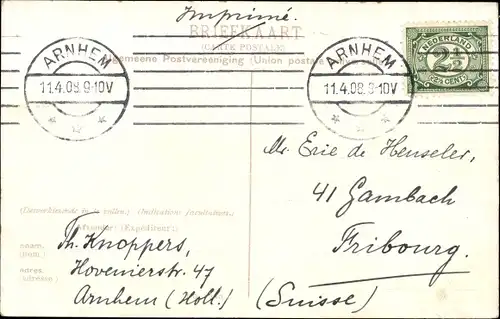 Imprimé.
BRIEFKAART
(CARTE POSTALE)
Algemeene Postvereeniging (Union postale
ARNHEM
11.4.08.9-10V
ARNHEM
11.4.08.9-10V
NEDERLAND
2½
(2½ CENTS)
Mr. Eric de Henseler,
41 Gambach
Fribourg.
(Suisse)
(Indication facultative.)
Afzender: (Expéditeur:)
naam.
(nom.)
Th. Knoppers,
adres.
(adresse.)
Hovenierstr. 47
Arnhem (Holl.)